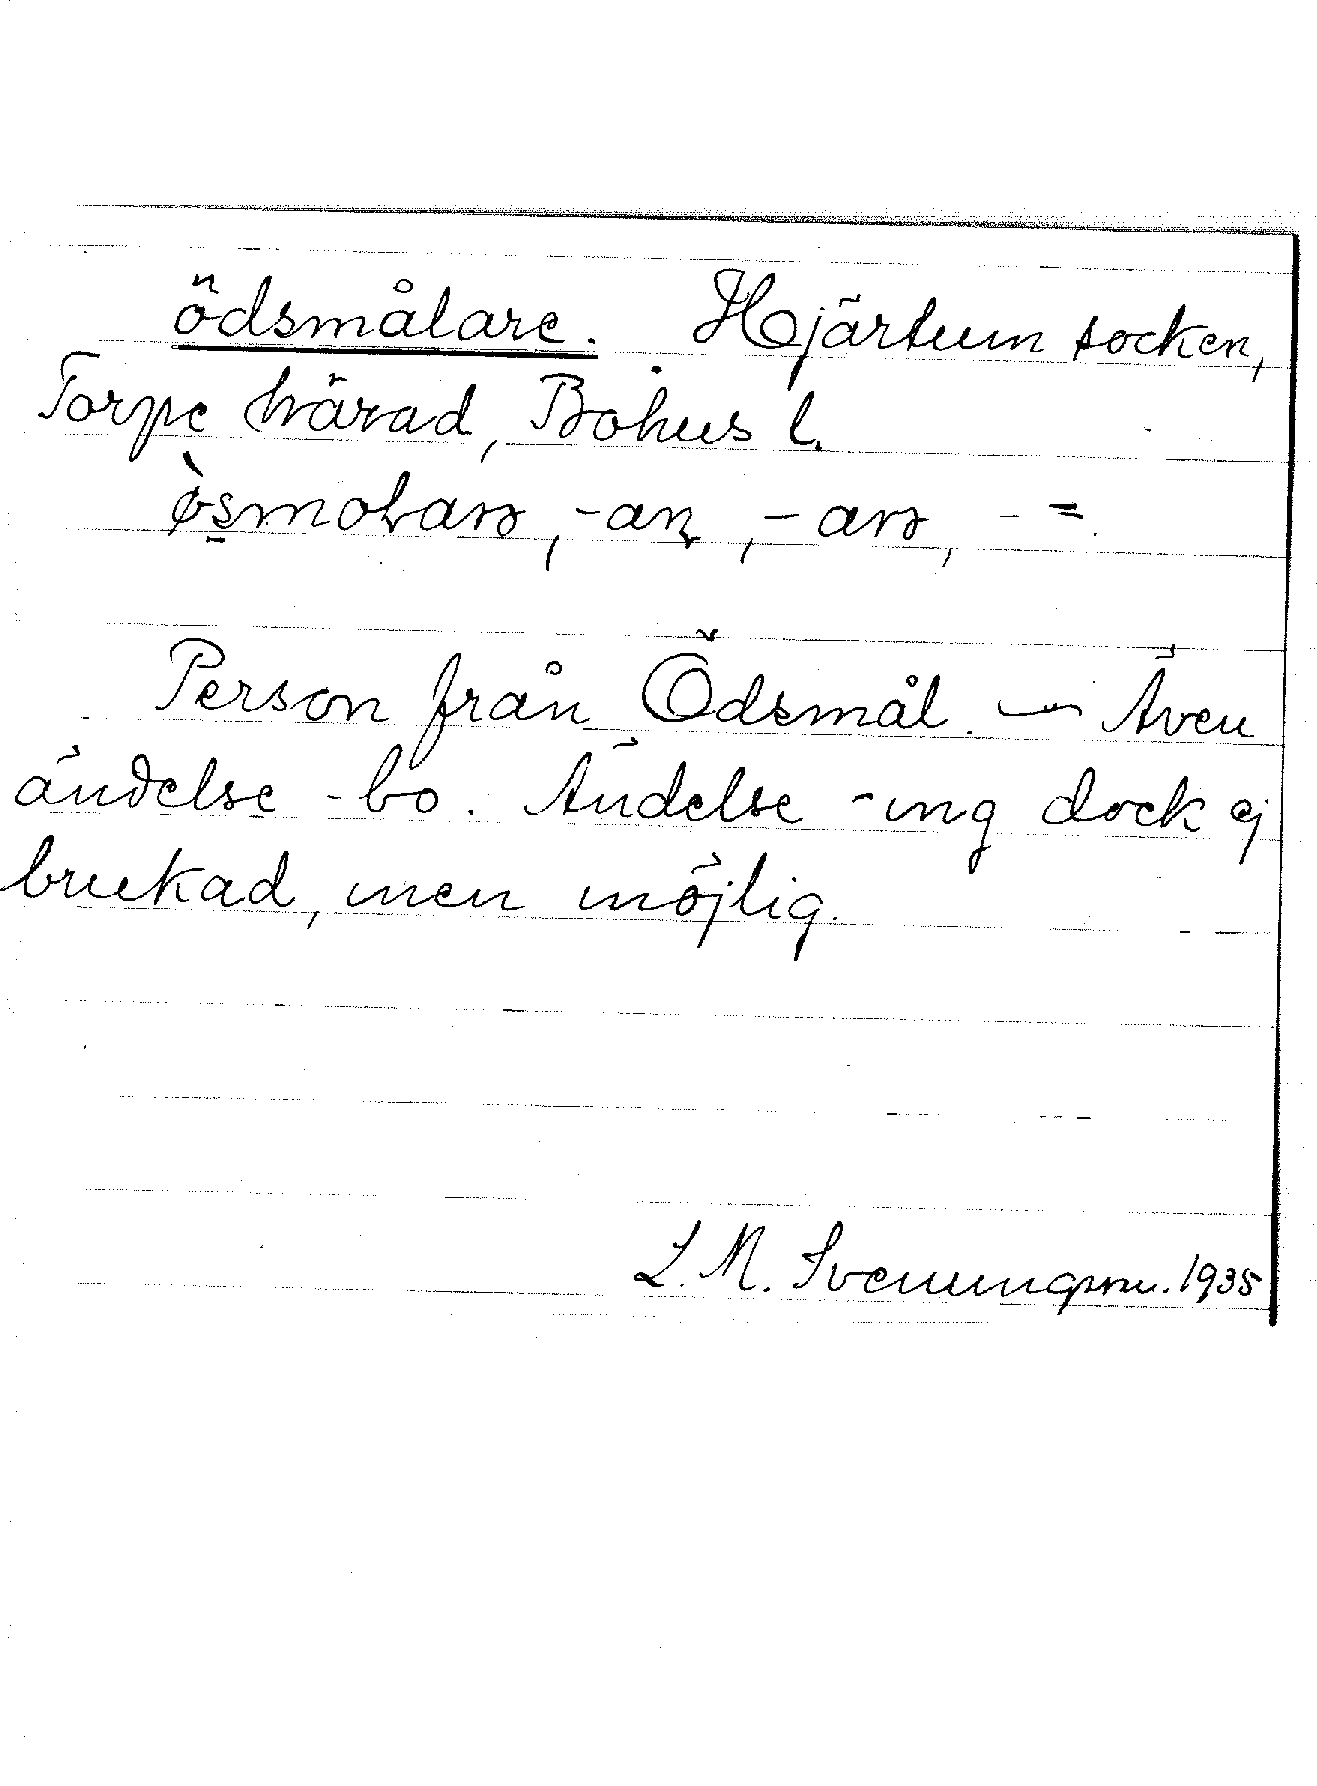 ödsmålare. Hjärtum socken,
Torpe härad, Bohus l.
-an, -=.
Person från Ödsmål. — Även
ändelse -bo. Ändelse -ing dock ej
brukad, men möjlig.
L. M. Svenungsson. 1935